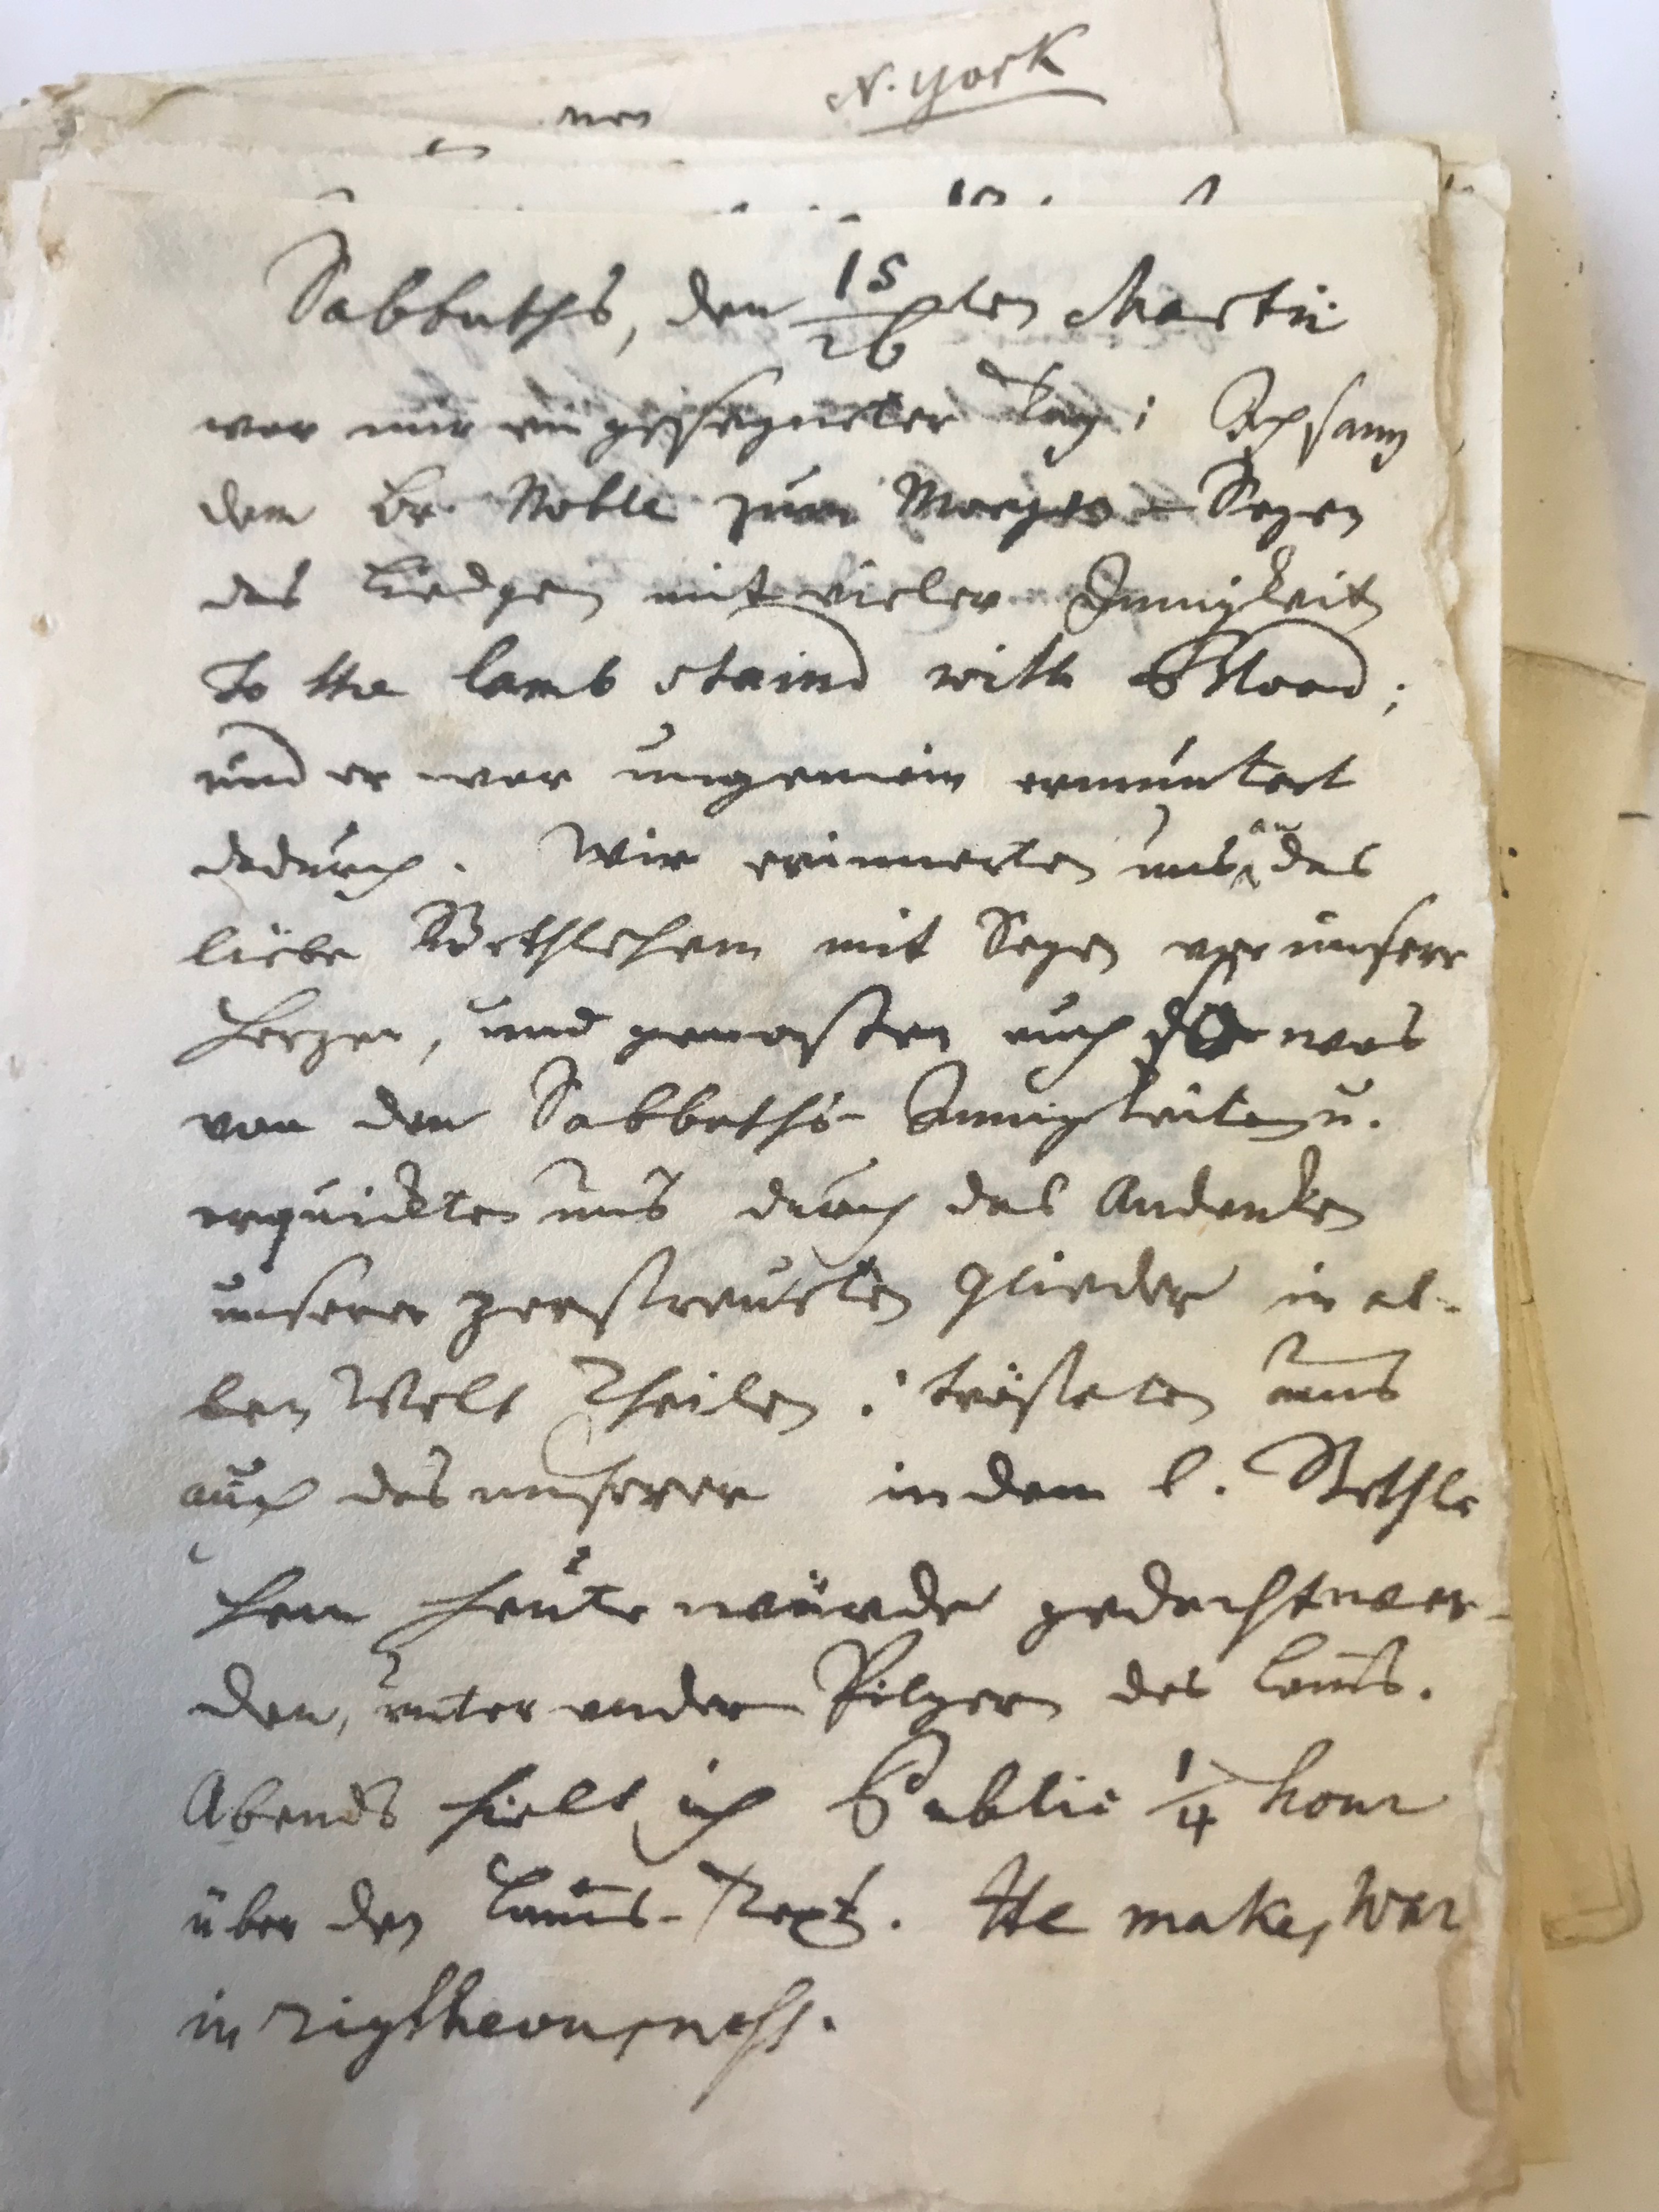 N. York
Sabbaths, den 15/26ten Martii
war mir ein gesegneter Tag; Ich sang
dem Br. Noble zum Morgen-Segen
das Liedgen mit vieler Innigkeit
to the lamb staind with Blood;
und er war ungemein ermuntert
dadurch. Wir erinnerten uns an das
liebe Bethlehem mit Segen vor unsere
Herzen, und genossen auch etwas
von den Sabbaths-Innigkeiten u.
erquickten uns durch das Andenken
unserer zerstreuten Glieder in al-
len Welt Theilen: trösteten uns
auch das unserer in dem l. Bethle
hem heute würde gedacht wer-
den, unter andern Pilgern des Lams.
Abends hielt ich Public 1/4 hour
über den Lams-Text. He makes War
in righteousness.